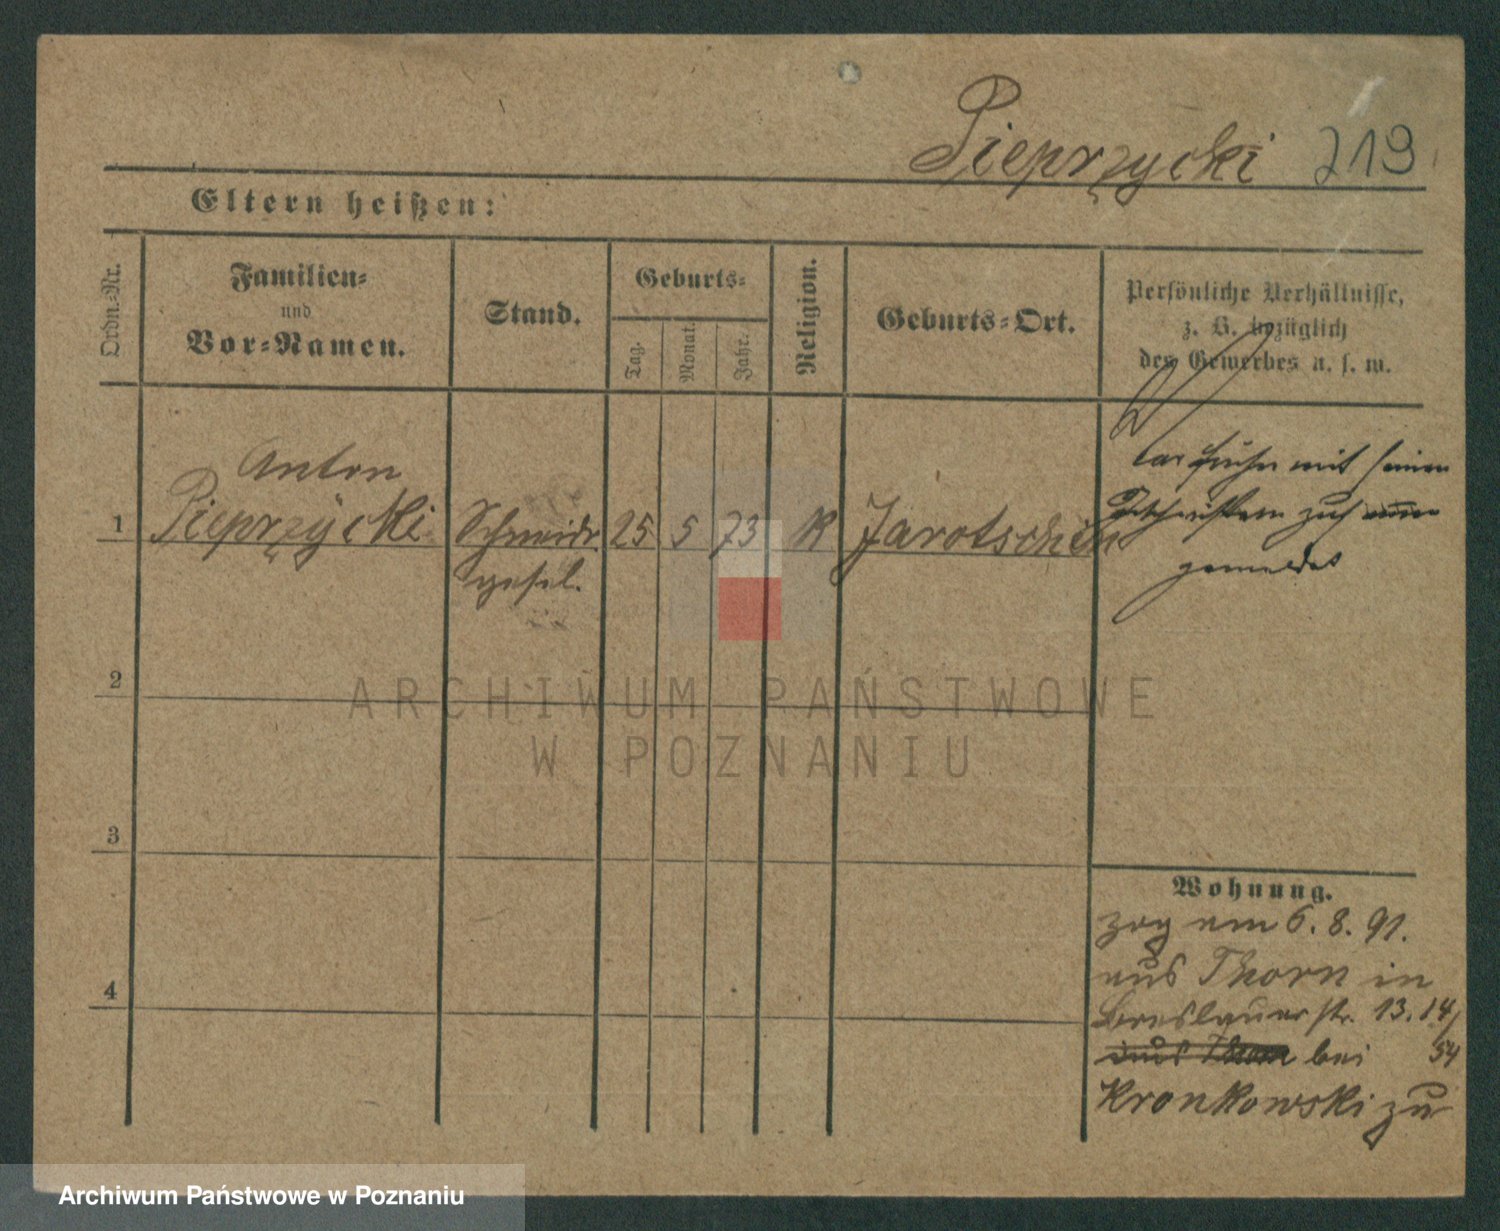 Pieprzycki 219
Eltern heißen:
Ordn.-Nr.
Familien-
und
Vor-Namen.
Stand.
Geburts-
Tag.
Monat.
Jahr.
Religion.
Geburts-Ort.
Persönliche Verhältnisse,
z. B. bezüglich
des Gewerbes u. s. w.
Anton
1 Pieprzycki Schneider 25 5 73 K Jarotschin
gesel.
war früher mit seinen
gemeldet
2
3
4
Wohnung.
zog am 6. 8. 91.
aus Thorn in
Breslauer str. 13.14/
aus Thorn bei 54
Kronkowski zu
ARCHIWUM PAŃSTWOWE
W POZNANIU
Archiwum Państwowe w Poznaniu